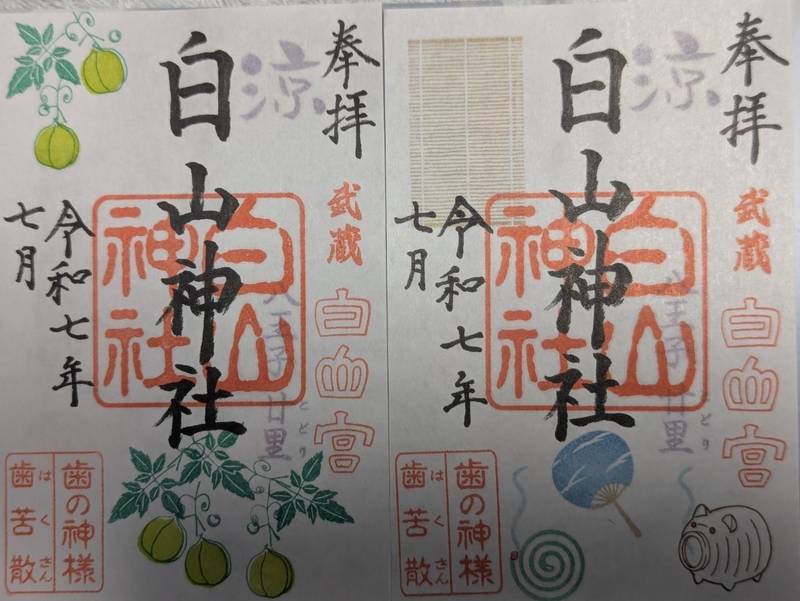 奉拝
涼
武蔵
白山宮
白山神社
白山
神社
八王子 廿里
とどり
令和七年
七月
歯の神様
歯苦散
はくさん
奉拝
涼
武蔵
白山宮
白山神社
白山
神社
八王子 廿里
とどり
令和七年
七月
歯の神様
歯苦散
はくさん